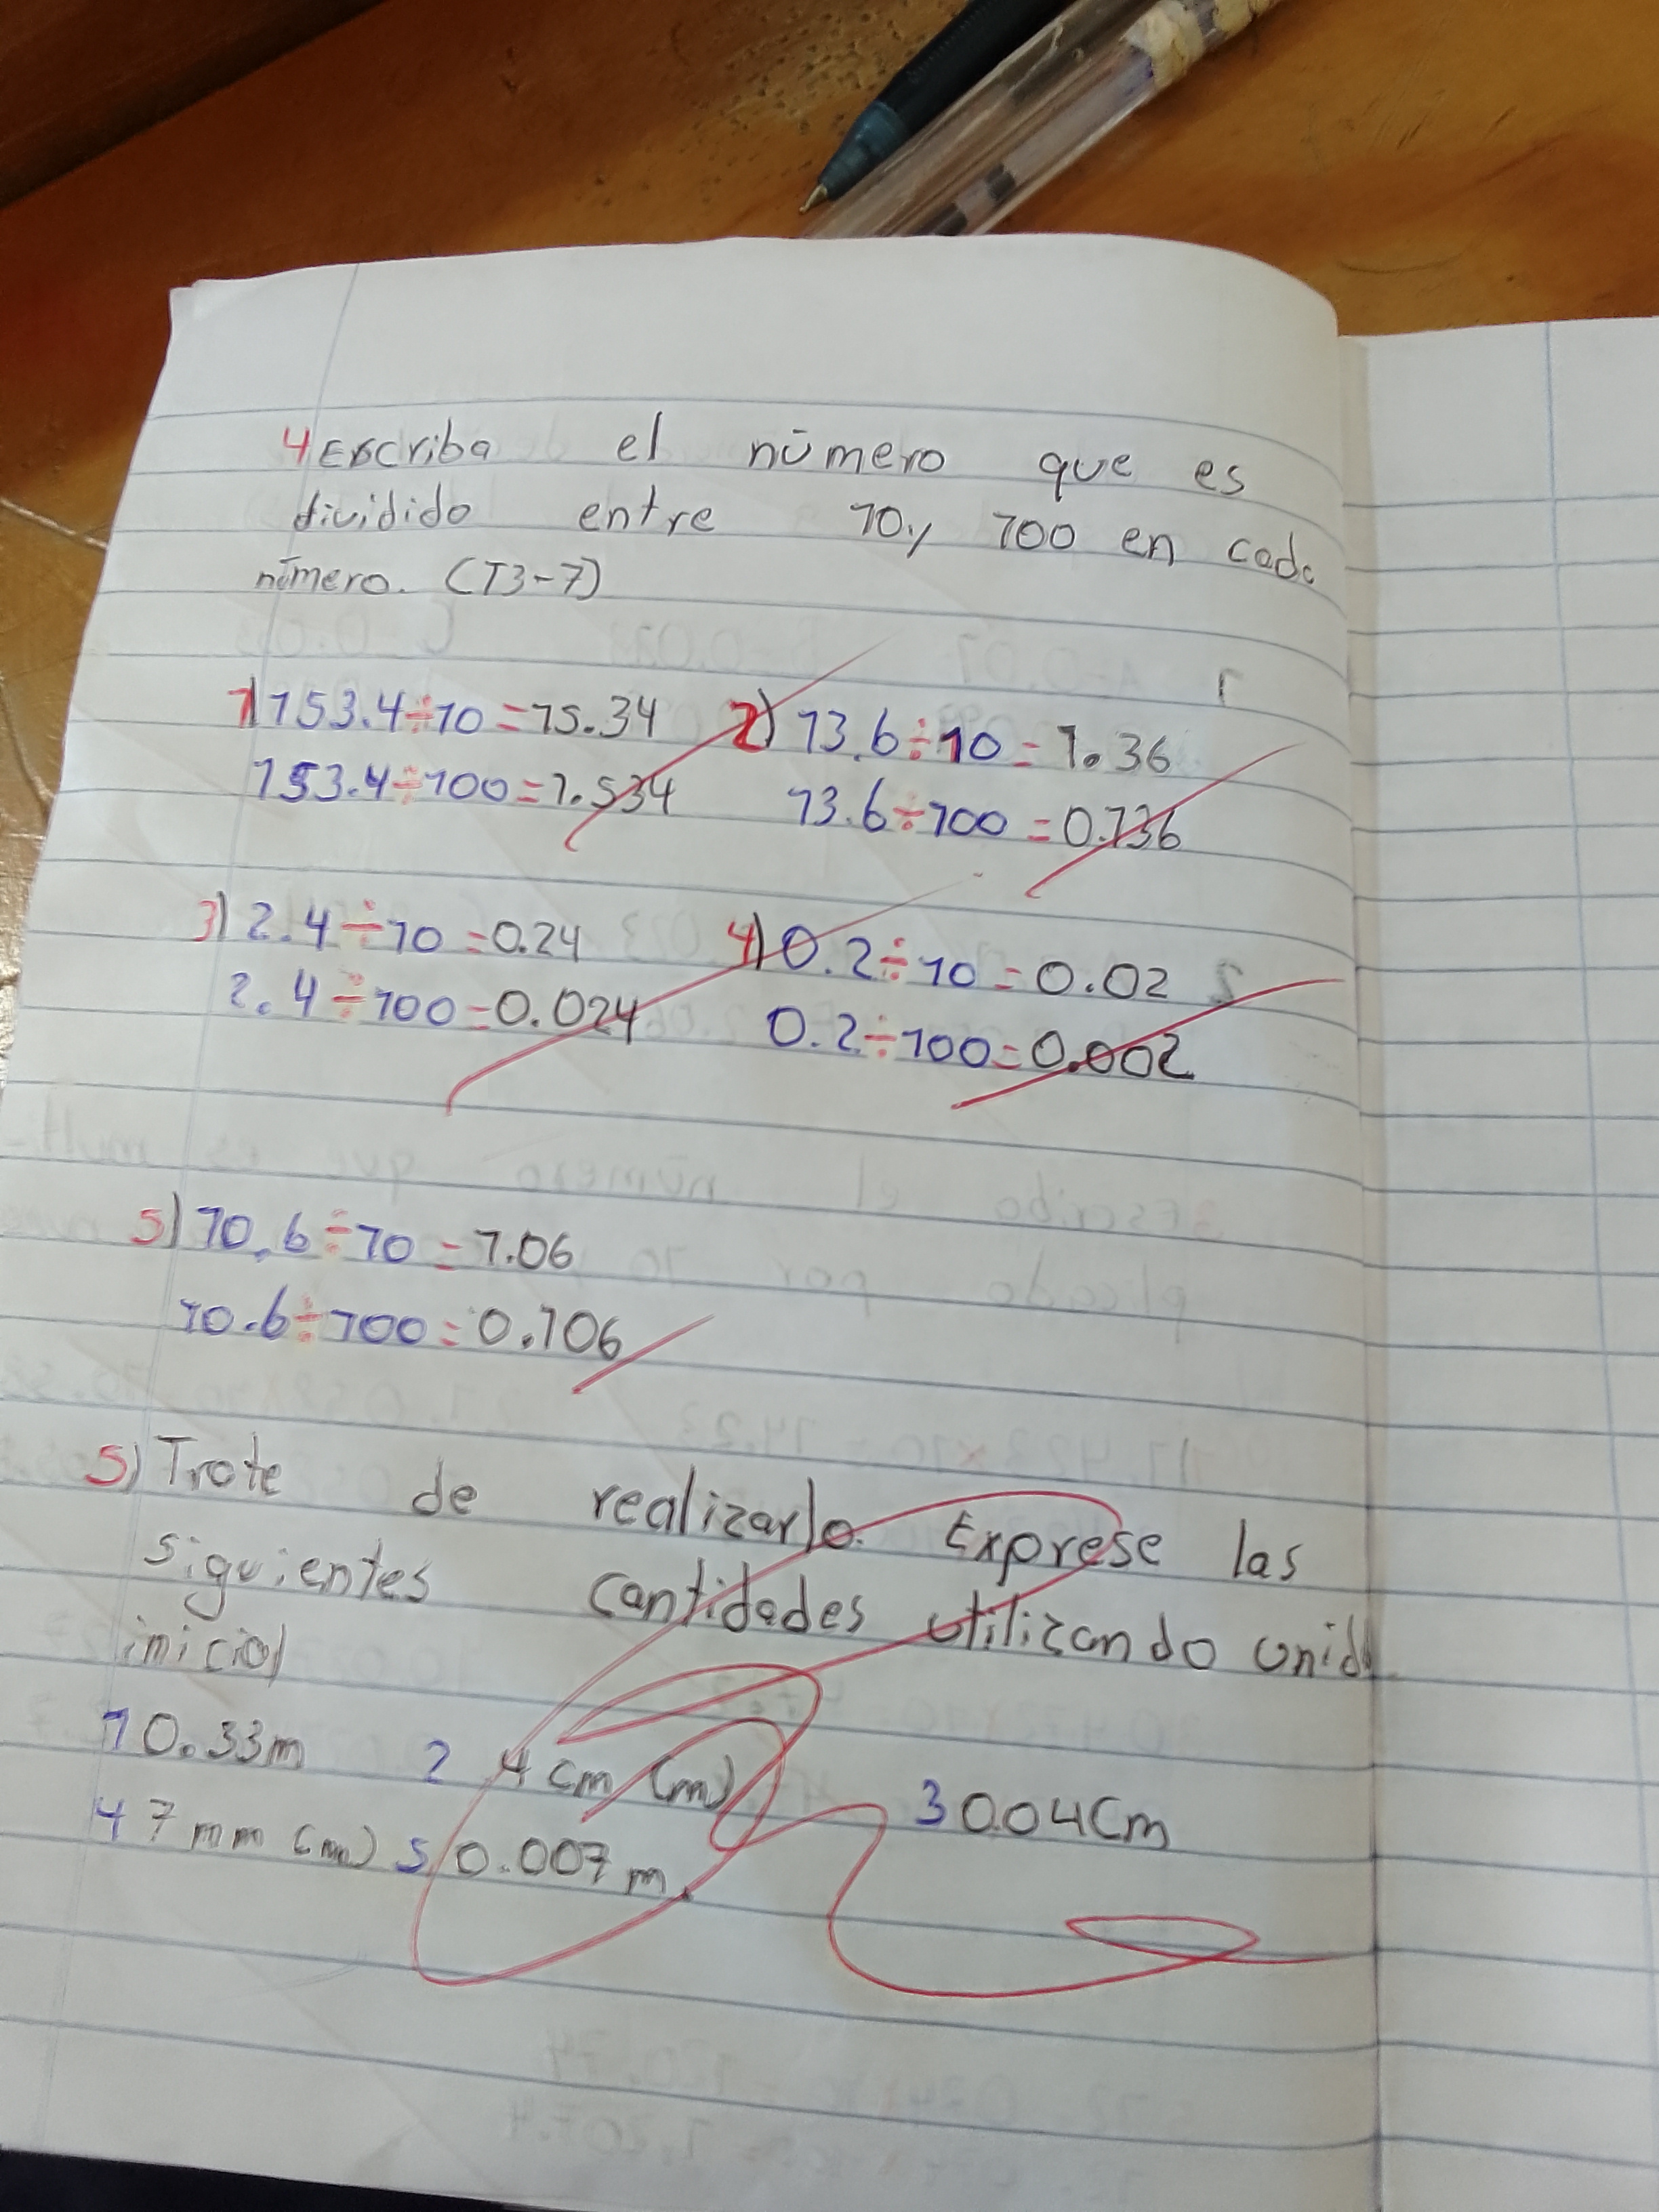 4 Escriba el número que es
dividido entre 10 y 100 en cada
número. (T3-7)
1) 153.4÷10=15.34 2) 13.6÷10=1.36
153.4÷100=1.534 13.6÷100=0.136
3) 2.4÷10=0.24 4) 0.2÷10=0.02
2.4÷100=0.024 0.2÷100=0.002
5) 10.6÷10=1.06
10.6÷100=0.106
5) Trate de realizarlo. Exprese las
siguientes cantidades utilizando unid
inicial
1 0.33m 2 4cm (m) 3 0.04Cm
4 7mm (m) 5 0.007m.